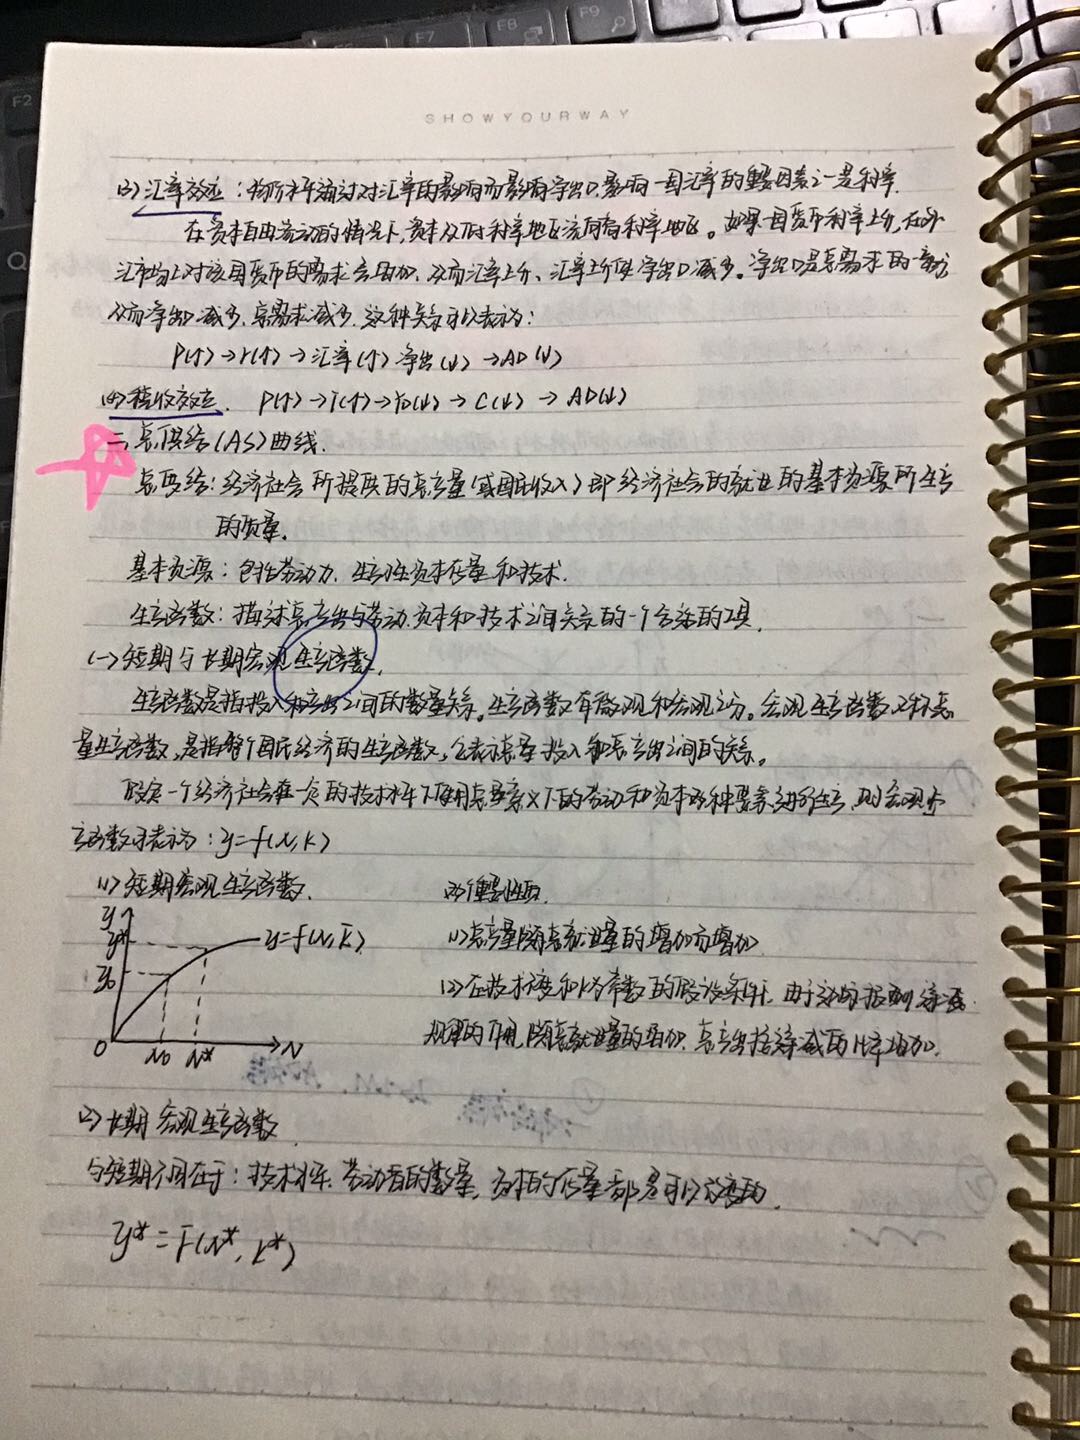 SHOWYOURWAY
(3)汇率效应：物价水平通过对汇率的影响而影响净出口,影响一国汇率的重要因素之一是利率.
在资本自由流动的情况下,资本从低利率地区流向高利率地区。如果一国货币利率上升,在外
汇市场上对该国货币的需求会增加、从而汇率上升、汇率上升使净出口减少。净出口是总需求的一部分
从而净出口减少,总需求减少.这种关系可以表示为：
P(↑)→r(↑)→汇率(↑)净出(↓)→AD(↓)
(4)税收效应. P(↑)→T(↑)→YD(↓)→C(↓)→AD(↓)
二、总供给(AS)曲线.
总供给：经济社会所提供的总产量(或国民收入)即经济社会的就业的基本资源所生产
的质量.
基本资源：包括劳动力、生产性资本存量和技术.
生产函数：描述总产出与劳动、资本和技术之间关系的一个合适的工具.
(一)短期与长期宏观生产函数.
生产函数是指投入和产出之间的数量关系。生产函数有微观和宏观之分。宏观生产函数又称总
量生产函数,是指整个国民经济的生产函数,它表示总量投入和总产出之间的关系。
假定一个经济社会在一定的技术水平下使用总量意义下的劳动和资本两种要素进行生产,则宏观生
产函数可表示为：y=f(N,K)
(1)短期宏观生产函数. 重要性质.
y
y*
y=f(N,K̄)
(1)总产量随总就业量的增加而增加.
y0
(2)在技术不变和K为常数的假设条件下,由于边际报酬递减
规律的作用,随着总就业量的增加,总产出按递减的比率增加.
O N0 N* N
(2)长期宏观生产函数
与短期不同在于：技术水平、劳动者的数量,资本的存量都是可以变动.
y*=F(N*,K*)